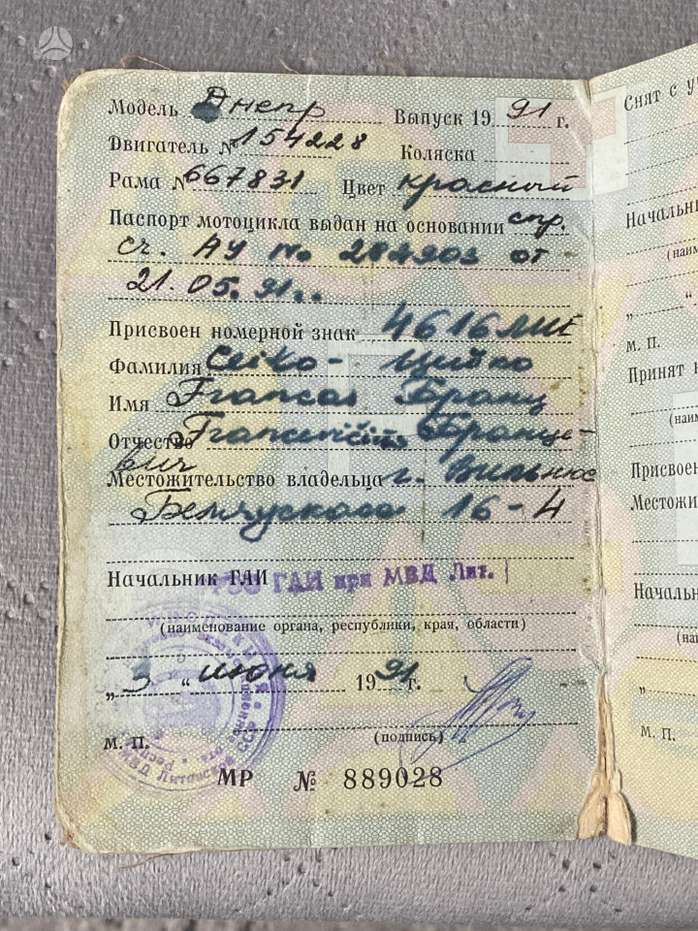 Модель Днепр Выпуск 19 91 г.
Двигатель № 154228 Коляска
Рама № 667831 Цвет красный
Паспорт мотоцикла выдан на основании спр.
сч. АУ № 284903 от
21.05.91.
Присвоен номерной знак 4616ЛИЕ
Фамилия Ceiko - Цейко
Имя Франц
Отчество Франце-
вич
Местожительство владельца г. Вильнюс
16-4
Начальник ГАИ РЭО ГАИ при МВД Лит.
(наименование органа, республики, края, области)
„ 3 “ июня 19 91 г.
М. П. (подпись)
МР № 889028
Снят с у
Начальн
(наим
„ “
м. п.
Принят н
(наим
Присвоен
Местожи
Начальн
(на
„
м. п.